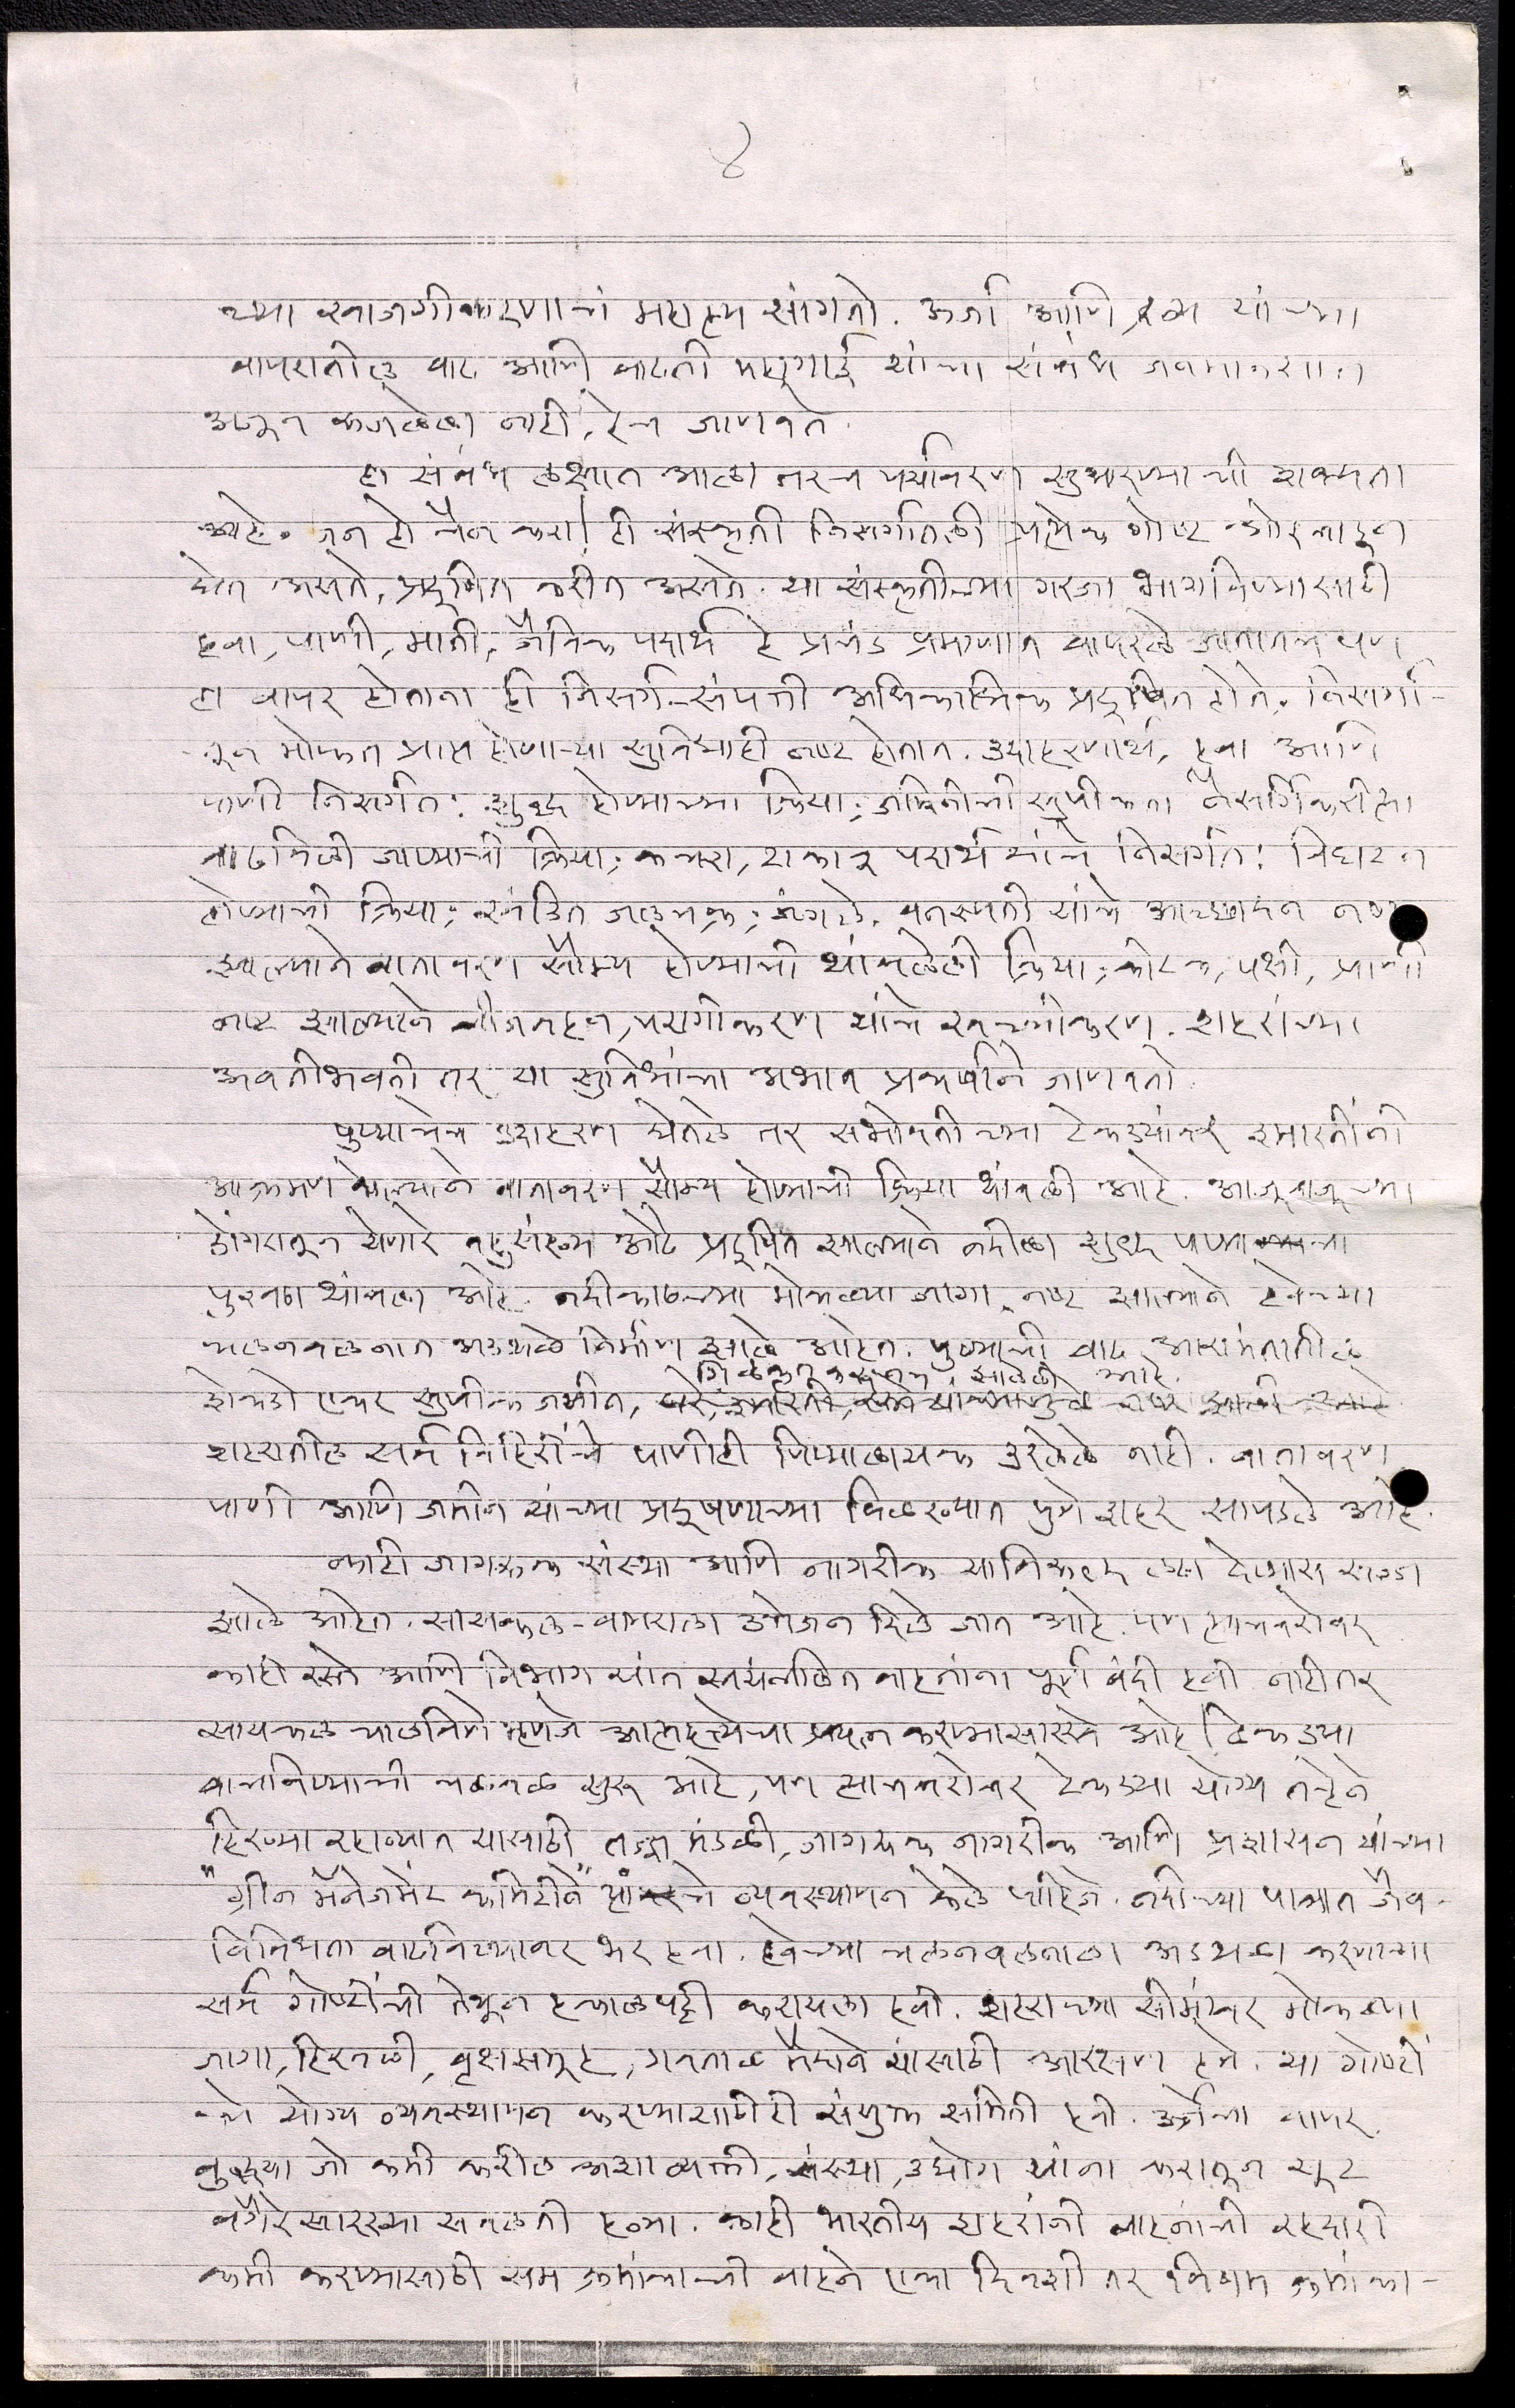 ४
च्या खाजगीकरणाचं महात्म्य सांगतो. ऊर्जा आणि द्रव्य यांच्या
वापरातील वाढ आणि वाढती महागाई यांचा संबंध जनमानसात
अजून रुजलेला नाही, हेच जाणवते.
हा संबंध लक्षात आला तरच पर्यावरण सुधारण्याची शक्यता
आहे. जन हो चैन करा! ही संस्कृती निसर्गातली प्रत्येक गोष्ट ओरबाडून
घेत असते, प्रदूषित करीत असते. या संस्कृतीच्या गरजा भागविण्यासाठी
हवा, पाणी, माती, जैविक पदार्थ हे प्रचंड प्रमाणात वापरले जातातच पण
हा वापर होताना ही निसर्ग-संपत्ती अधिकाधिक प्रदूषित होते. निसर्गा-
-तून मोफत प्राप्त होणाऱ्या सुविधाही नष्ट होतात. उदाहरणार्थ, हवा आणि
पाणी निसर्गत: शुद्ध होण्याच्या क्रिया; जमिनीची सुपीकता नैसर्गिकरीत्या
वाढविली जाण्याची क्रिया; कचरा, टाकाऊ पदार्थ यांचे निसर्गत: विघटन
होण्याची क्रिया; खंडित जलचक्र; जंगले, वनस्पती यांचे आच्छादन नष्ट
झाल्याने वातावरण सौम्य होण्याची थांबलेली क्रिया; कीटक, पक्षी, प्राणी
नष्ट झाल्याने बीजवहन, परागीकरण यांचे खच्चीकरण. शहरांच्या
अवतीभवती तर या सुविधांचा अभाव प्रकर्षाने जाणवतो.
पुण्याचेच उदाहरण घेतले तर सभोवतीच्या टेकड्यांवर इमारतींनी
आक्रमण केल्याने वातावरण सौम्य होण्याची क्रिया थांबली आहे. आजूबाजूच्या
डोंगरातून येणारे बहुसंख्य ओढे प्रदूषित झाल्याने नदीला शुद्ध पाण्याचा
पुरवठा थांबला आहे. नदीकाठच्या मोकळ्या जागा नष्ट झाल्याने हवेच्या
चलनवलनात अडथळे निर्माण झाले आहेत. पुण्याची वाढ आसमंतातील
गिळंकृत करून झालेली आहे.
शेकडो एकर सुपीक जमीन, घरे, इमारती, रस्ते यांच्यामुळे नष्ट झाली आहे
शहरातील सर्व विहिरींचे पाणीही पिण्यालायक उरलेले नाही. वातावरण
पाणी आणि जमीन यांच्या प्रदूषणाच्या विळख्यात पुणे शहर सापडले आहे.
काही जागरूक संस्था आणि नागरीक याविरुद्ध लढा देण्यास सज्ज
झाले आहेत. सायकल-वापराला उत्तेजन दिले जात आहे. पण त्याचबरोबर
काही रस्ते आणि विभाग यांत स्वयंचलित वाहनांना पूर्ण बंदी हवी नाहीतर
सायकल चालविणे म्हणजे आत्महत्येचा प्रयत्न करण्यासारखे आहे! टेकड्या
वाचविण्याची चळवळ सुरू आहे, पण त्याचबरोबर टेकड्या योग्य तऱ्हेने
हिरव्या रहाव्यात यासाठी तज्ज्ञ मंडळी, जागरूक नागरीक आणि प्रशासन यांच्या
"ग्रीन मॅनेजमेंट कमिटीने" यांचे व्यवस्थापन केले पाहिजे. नदीच्या पात्रात जैव-
विविधता वाढविण्यावर भर हवा. हवेच्या चलनवलनाला अडथळा करणाऱ्या
सर्व गोष्टींची तेथून हकालपट्टी करायला हवी. शहराच्या सीमेवर मोकळ्या
जागा, हिरवळी, वृक्षसमूह, गवताळ मैदाने यांसाठी आरक्षण हवे. या गोष्टीं
-चे योग्य व्यवस्थापन करण्यासाठीही संयुक्त समिती हवी. ऊर्जेचा वापर
जो कमी करील अशा व्यक्ती, संस्था, उद्योग यांना करातून सूट
वगैरे सारख्या सवलती हव्या. काही भारतीय शहरांनी वाहनांची रहदारी
कमी करण्यासाठी सम क्रमांकाची वाहने एका दिवशी तर विषम क्रमांका-